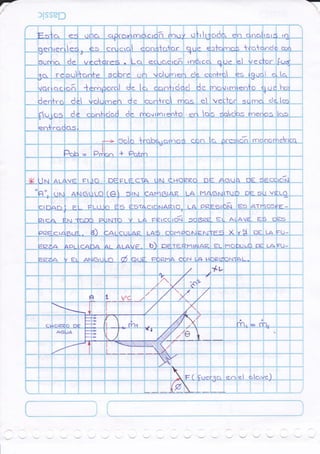 Esto es una aproximación muy utilizada en analisis in
genieriles, es crucial constatar que estamos tratando con
suma de vectores. La ecuación indica que el vector fuer
za resultante sobre un volumen de control es igual a la
variación temporal de la cantidad de movimiento que hay
dentro del volumen de control mas el vector suma de los
flujos de cantidad de movimiento en las salidas menos las
entradas.
Solo trabajamos con la presión manometrica
Pab = Pman + Patm
* UN ALAVE FIJO DEFLECTA UN CHORRO DE AGUA DE SECCIÓN
"A", UN ANGULO (θ) SIN CAMBIAR LA MAGNITUD DE SU VELO
CIDAD; EL FLUJO ES ESTACIONARIO, LA PRESIÓN ES ATMOSFE-
RICA EN TODO PUNTO Y LA FRICCIÓN SOBRE EL ALAVE ES DES
PRECIABLE. a) CALCULAR LAS COMPONENTES X y Z DE LA FU-
ERZA APLICADA AL ALAVE. b) DETERMINAR EL MODULO DE LA FU-
ERZA Y EL ANGULO Ø QUE FORMA CON LA HORIZONTAL.
A 1 VC 2 ṁ₂ XL
CHORRO DE
AGUA
ṁ₁ X₁ θ ṁ₁ = ṁ₂
F (fuerza en el alave)
Ø